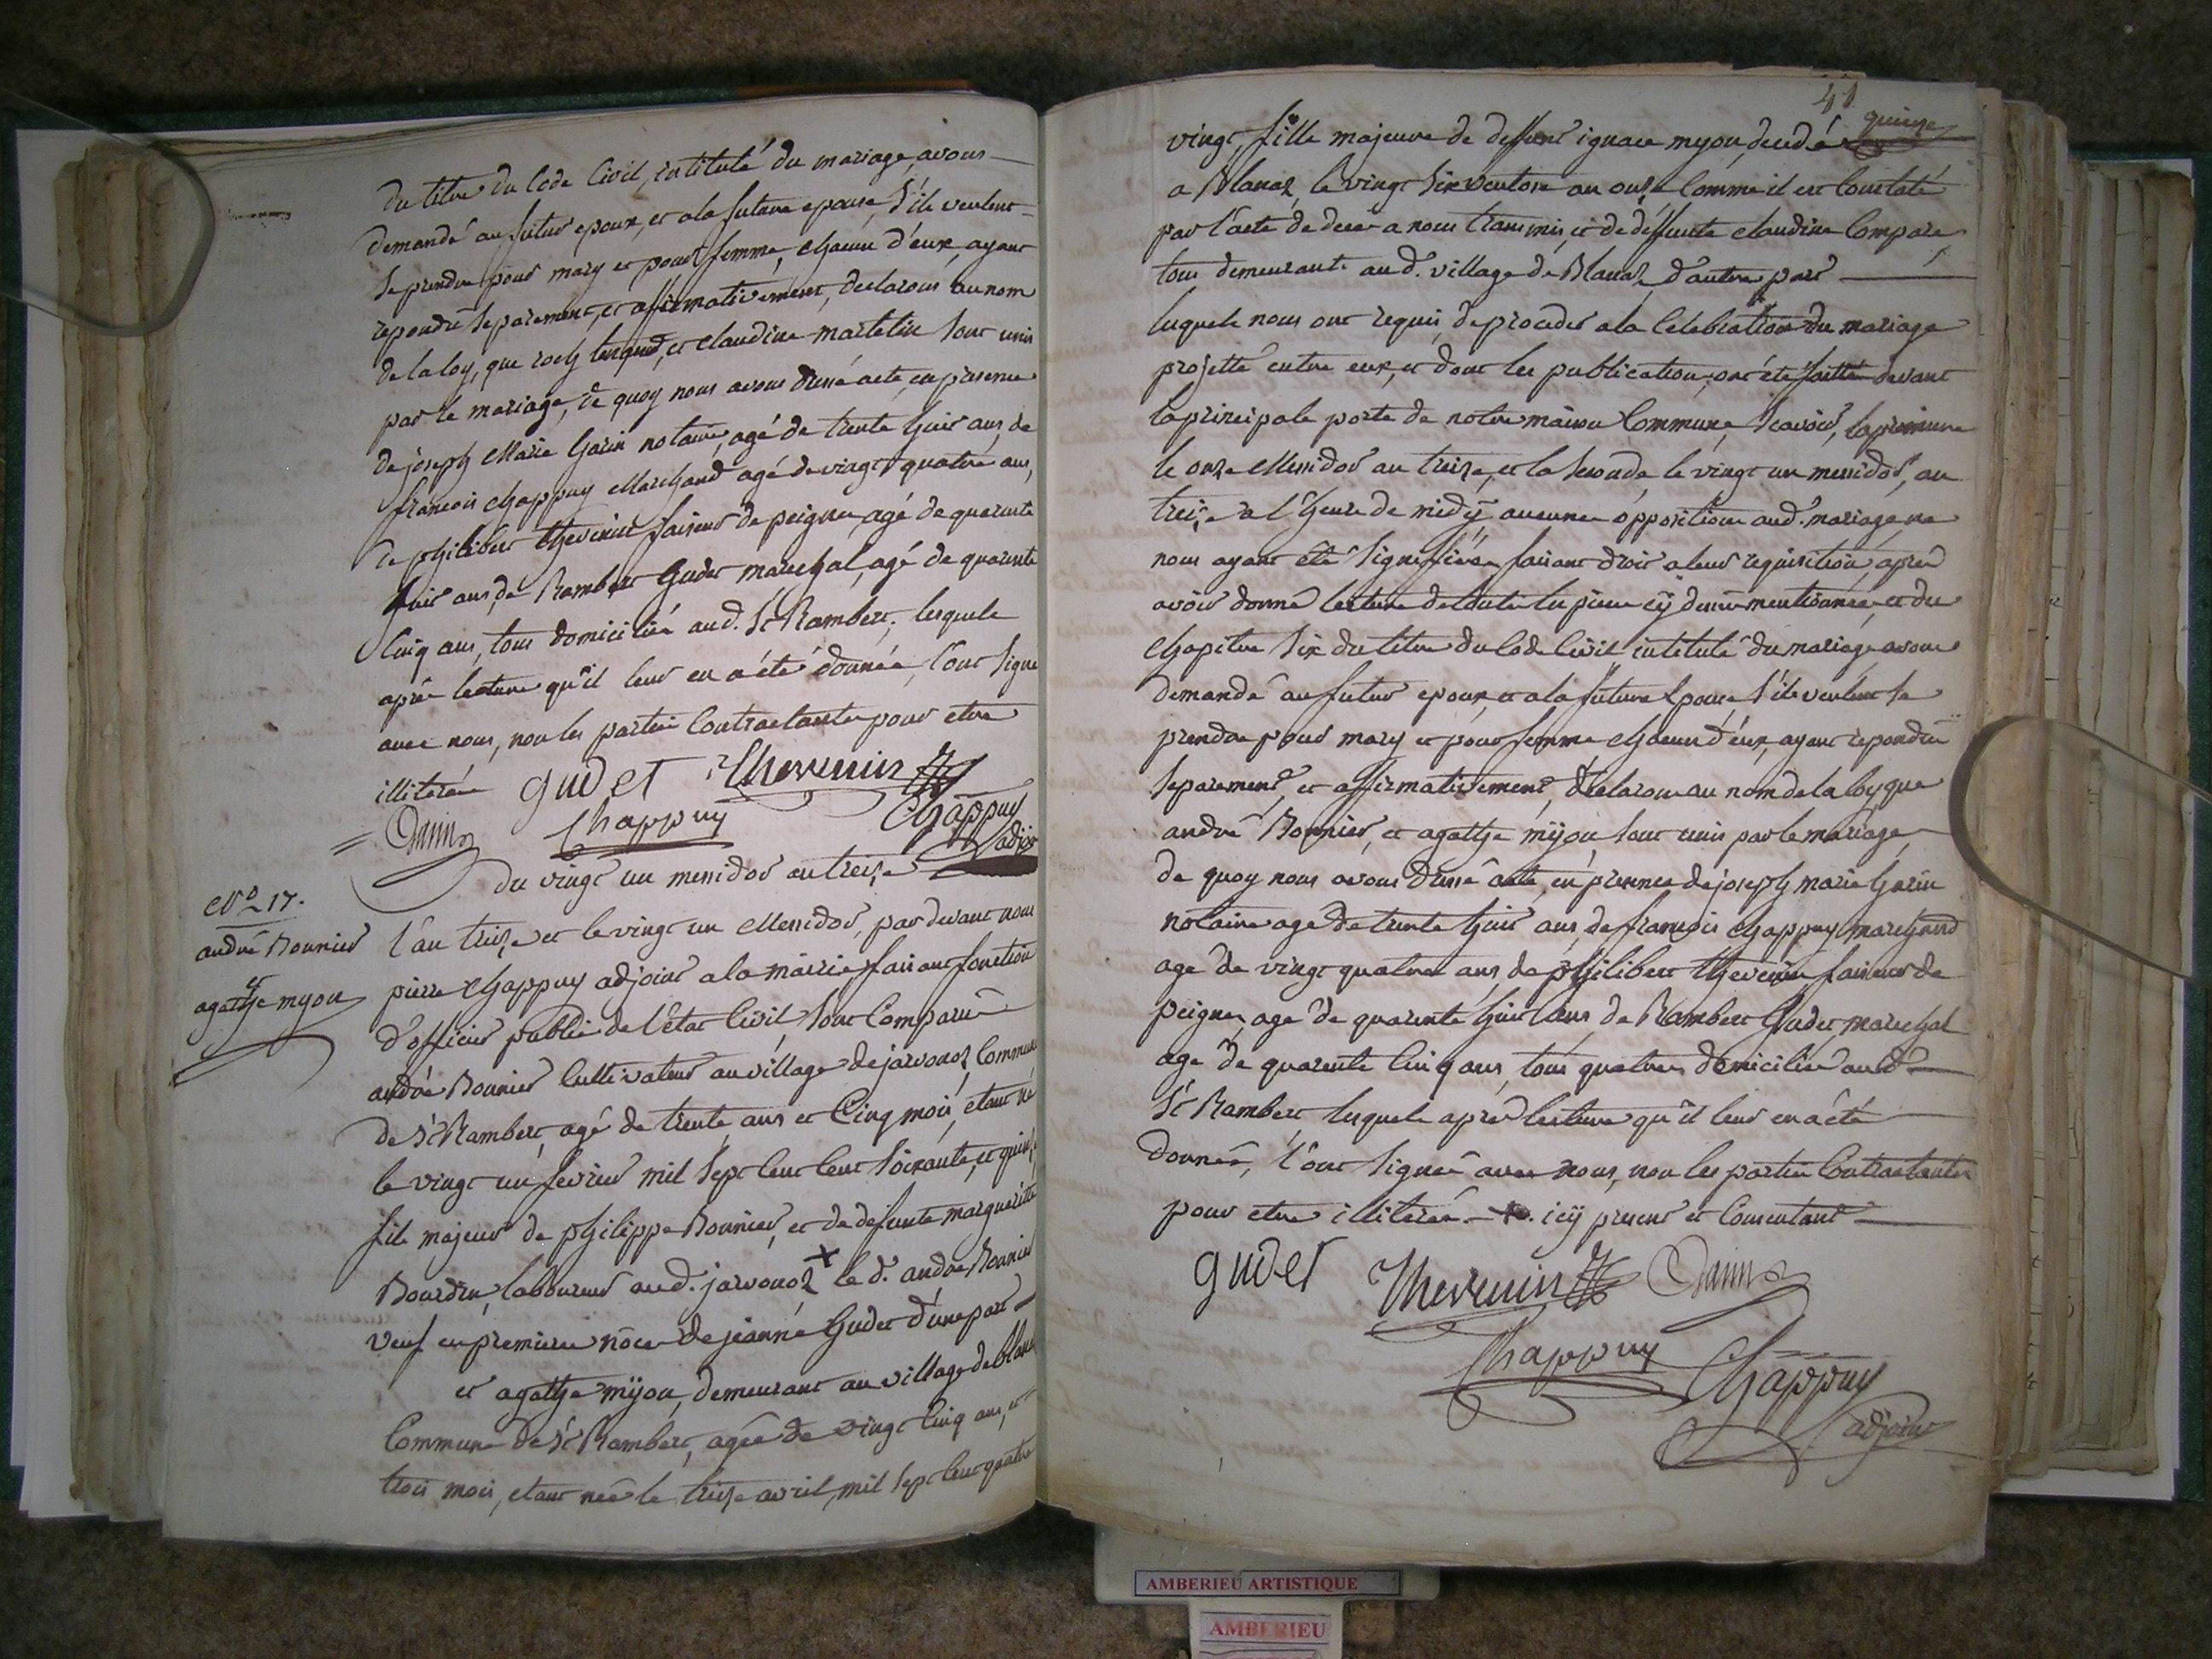 du titre du Code Civil, intitulé du mariage, avons
demandé au futur epoux, et a la future epouse, s'ils veulent
se prendre pour mary et pour femme, chacun d'eux, ayant
repondu separement, et affirmativement, declarons au nom
de la loy, que roch et Claudine martelin sont unis
par le mariage, de quoy nous avons dressé acte, en presence
de joseph Marie Garin notaire, agé de trente huit ans, de
françois Chappuy Marchand agé de vingt quatre ans,
de philibert thevenin faiseur de peignes, agé de quarante
huit ans, de Rambert Gudet marechal, agé de quarante
Cinq ans, tous domiciliés aud. St Rambert, lesquels
après lecture qu'il leur en a été donnée, l'ont signé
avec nous, non les parties Contractantes pour etre
illiterés
gudet Thevenin
Garin Chappuy Chappuy
adjoint
du vingt un messidor an treize
N° 17.
andré Bonnier
et
agathe myon
l'an treize et le vingt un Messidor, par devant nous
pierre Chappuy adjoint a la mairie faisant fonction
d'officier public de l'état Civil, sont Comparus
andré Bonnier Cultivateur au village de javornoz Commune
de St Rambert, agé de trente ans et Cinq mois, etant né
le vingt un fevrier mil sept Cent Cent soixante, et quinze
fils majeur de philippe Bonnier, et de defunte marguerite
Bourdin, laboureur aud. javornoz × le d. andré Bonnier
veuf en premiere nôce de jeanne Gudet d'une part
et agathe mÿon, demeurant au village de blanaz
Commune de St Rambert, agée de vingt Cinq ans, et
trois mois, etant née le treize avril, mil sept Cent quatre
41
vingt, fille majeure de deffunt ignace myon, decedé quinze
a Blanaz, le vingt six ventose an onze Comme il est Constaté
par l'acte de decès a nous transmis, et de deffunte Claudine Compare
tous demeurants aud. village de Blanaz, d'autre part
lesquels nous ont requis, de proceder a la Célébration du mariage
projetté entre eux, et dont les publications ont été faittes devant
la principale porte de notre maison Commune, Scavoir, la premiere
le onze Messidor an treize, et la seconde le vingt un messidor, an
treize a l'heure de midÿ, aucune opposition aud. mariage ne
nous ayant été signifiée, faisant droit a leur requisition, après
avoir donné lecture de toutes les pieces cÿ dessus mentionnées, et du
chapitre six du titre du Code Civil intitulé du mariage avons
demandé au futur epoux, et a la future epouse, s'ils veulent se
prendre pour mary et pour femme chacun d'eux, ayant repondu
separement, et affirmativement, declarons au nom de la loy que
andré Bonnier, et agathe mÿon, sont unis par le mariage,
de quoy nous avons dressé acte, en presence de joseph marie Garin
notaire agé de trente huit ans, de françois Chappuy marchand
agé de vingt quatre ans, de philibert thevenin faiseur de
peignes, agé de quarante huit ans, de Rambert Gudet, marechal
agé de quarante Cinq ans, tous quatres domiciliés aud.
St Rambert, lesquels après lecture qu'il leur en a été
donnée, l'ont signée avec nous, non les parties Contractantes
pour etre illiterés - ×. icÿ present et Consentant
gudet Thevenin Garin
Chappuy Chappuy
adjoint
AMBERIEU ARTISTIQUE
AMBERIEU